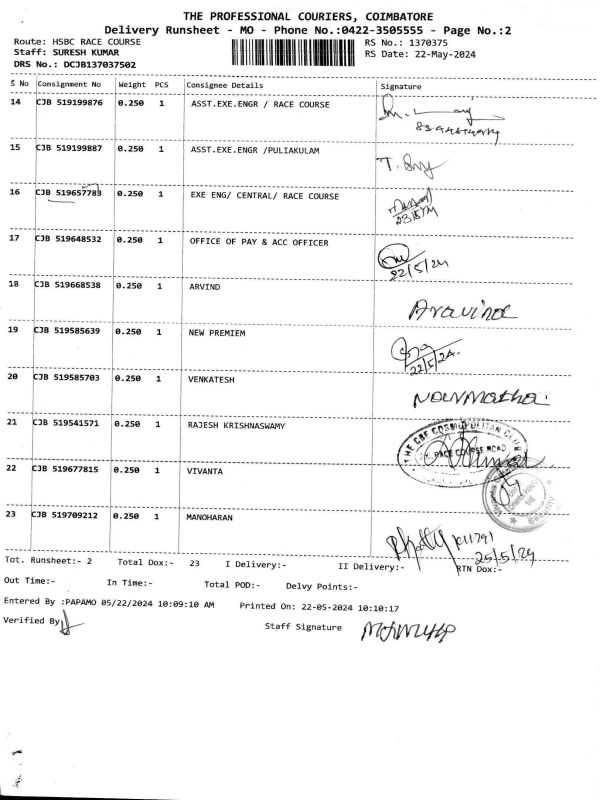 THE PROFESSIONAL COURIERS, COIMBATORE
Delivery Runsheet - MO - Phone No.:0422-3505555 - Page No.:2
Route: HSBC RACE COURSE RS No.: 1370375
Staff: SURESH KUMAR RS Date: 22-May-2024
DRS No.: DCJB137037502
S No Consignment No Weight PCS Consignee Details Signature
14 CJB 519199876 0.250 1 ASST.EXE.ENGR / RACE COURSE
15 CJB 519199887 0.250 1 ASST.EXE.ENGR /PULIAKULAM
16 CJB 519657783 0.250 1 EXE ENG/ CENTRAL/ RACE COURSE
17 CJB 519648532 0.250 1 OFFICE OF PAY & ACC OFFICER
22/5/24
18 CJB 519668538 0.250 1 ARVIND Aravind
19 CJB 519585639 0.250 1 NEW PREMIEM
22/5/24.
20 CJB 519585703 0.250 1 VENKATESH
21 CJB 519541571 0.250 1 RAJESH KRISHNASWAMY
THE CBE COSMOPOLITAN CLUB
RACE COURSE ROAD
22 CJB 519677815 0.250 1 VIVANTA
23 CJB 519709212 0.250 1 MANOHARAN
25/5/24
Tot. Runsheet:- 2 Total Dox:- 23 I Delivery:- II Delivery:- RTN Dox:-
Out Time:- In Time:- Total POD:- Delvy Points:-
Entered By :PAPAMO 05/22/2024 10:09:10 AM Printed On: 22-05-2024 10:10:17
Verified By Staff Signature